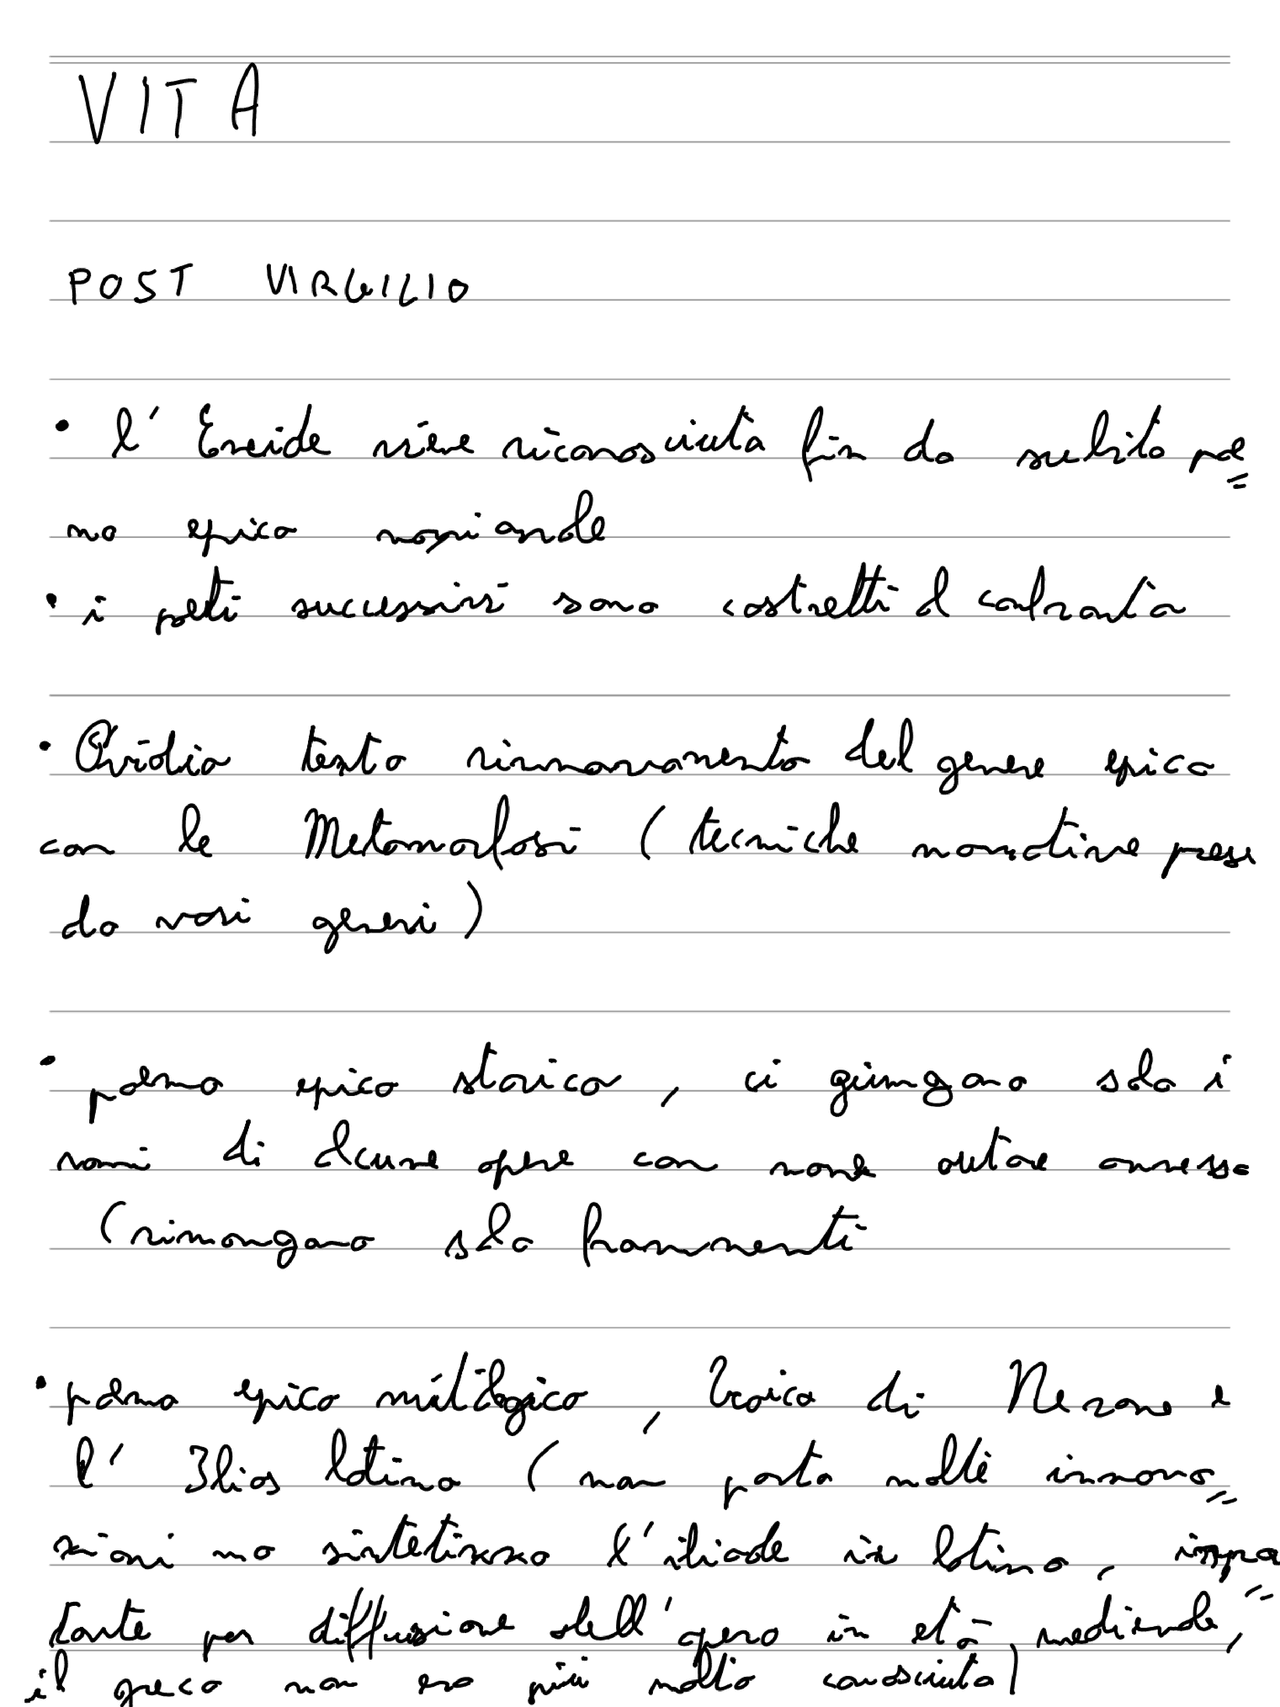 VITA
POST VIRGILIO
• l' Eneide viene riconosciuta fin da subito poe=
ma epico nazionale
• i poeti successivi sono costretti al confronto
• Ovidio tenta rinnovamento del genere epico
con le Metamorfosi (tecniche narrative prese
da vari generi)
• poema epico storico, ci giungono solo i
nomi di alcune opere con nome autore annesso
(rimangono solo frammenti
• poema epico mitologico, Troica di Nerone e
l' Ilias latina (non porta molte innova=
zioni ma sintetizza l'iliade in latino, impor=
tante per diffusione dell'opera in età medievale,
il greco non era più molto conosciuto)